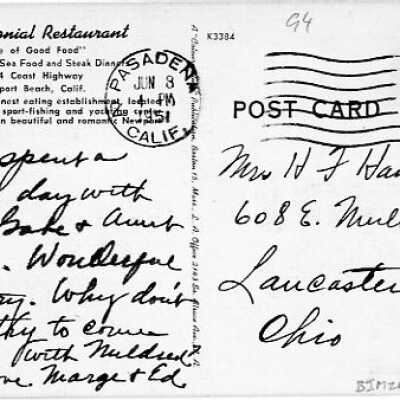 nial Restaurant
e of Good Food"
Sea Food and Steak Dinners
4 Coast Highway
port Beach, Calif.
nest eating establishment, located
sport-fishing and yachting center
n beautiful and romantic New
PASADENA
JUN 8
4 PM
1951
CALIF.
K3384
94
POST CARD
spent a
day with
Babe & Aunt
. Wonderful
. Why don't
thy to come
with Mildred
ove Marge & Ed
Mrs H F Ha
608 E. Mul
Lancaster
Ohio